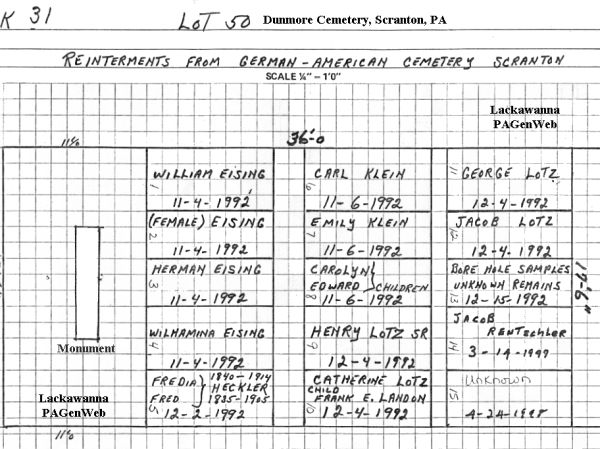 K 31 LOT 50 Dunmore Cemetery, Scranton, PA
REINTERMENTS FROM GERMAN-AMERICAN CEMETERY SCRANTON
SCALE ¼" – 1'0"
Lackawanna
PAGenWeb
36'-0
WILLIAM EISING
1
11-4-1992
(FEMALE) EISING
2
11-4-1992
HERMAN EISING
3
11-4-1992
WILHAMINA EISING
4
11-4-1992
FREDIA 1840-1914
HECKLER
FRED 1835-1905
5
12-2-1992
CARL KLEIN
6
11-6-1992
EMILY KLEIN
7
11-6-1992
CAROLYN
EDWARD CHILDREN
8
11-6-1992
HENRY LOTZ SR
9
12-4-1992
CATHERINE LOTZ
CHILD
FRANK E. LANDON
10
12-4-1992
11
GEORGE LOTZ
12-4-1992
JACOB LOTZ
12
12-4-1992
BORE HOLE SAMPLES
UNKNOWN REMAINS
13
12-15-1992
JACOB
RENTSCHLER
14
3-14-1997
Unknown
15
4-24-1998
17'-6"
Monument
Lackawanna
PAGenWeb